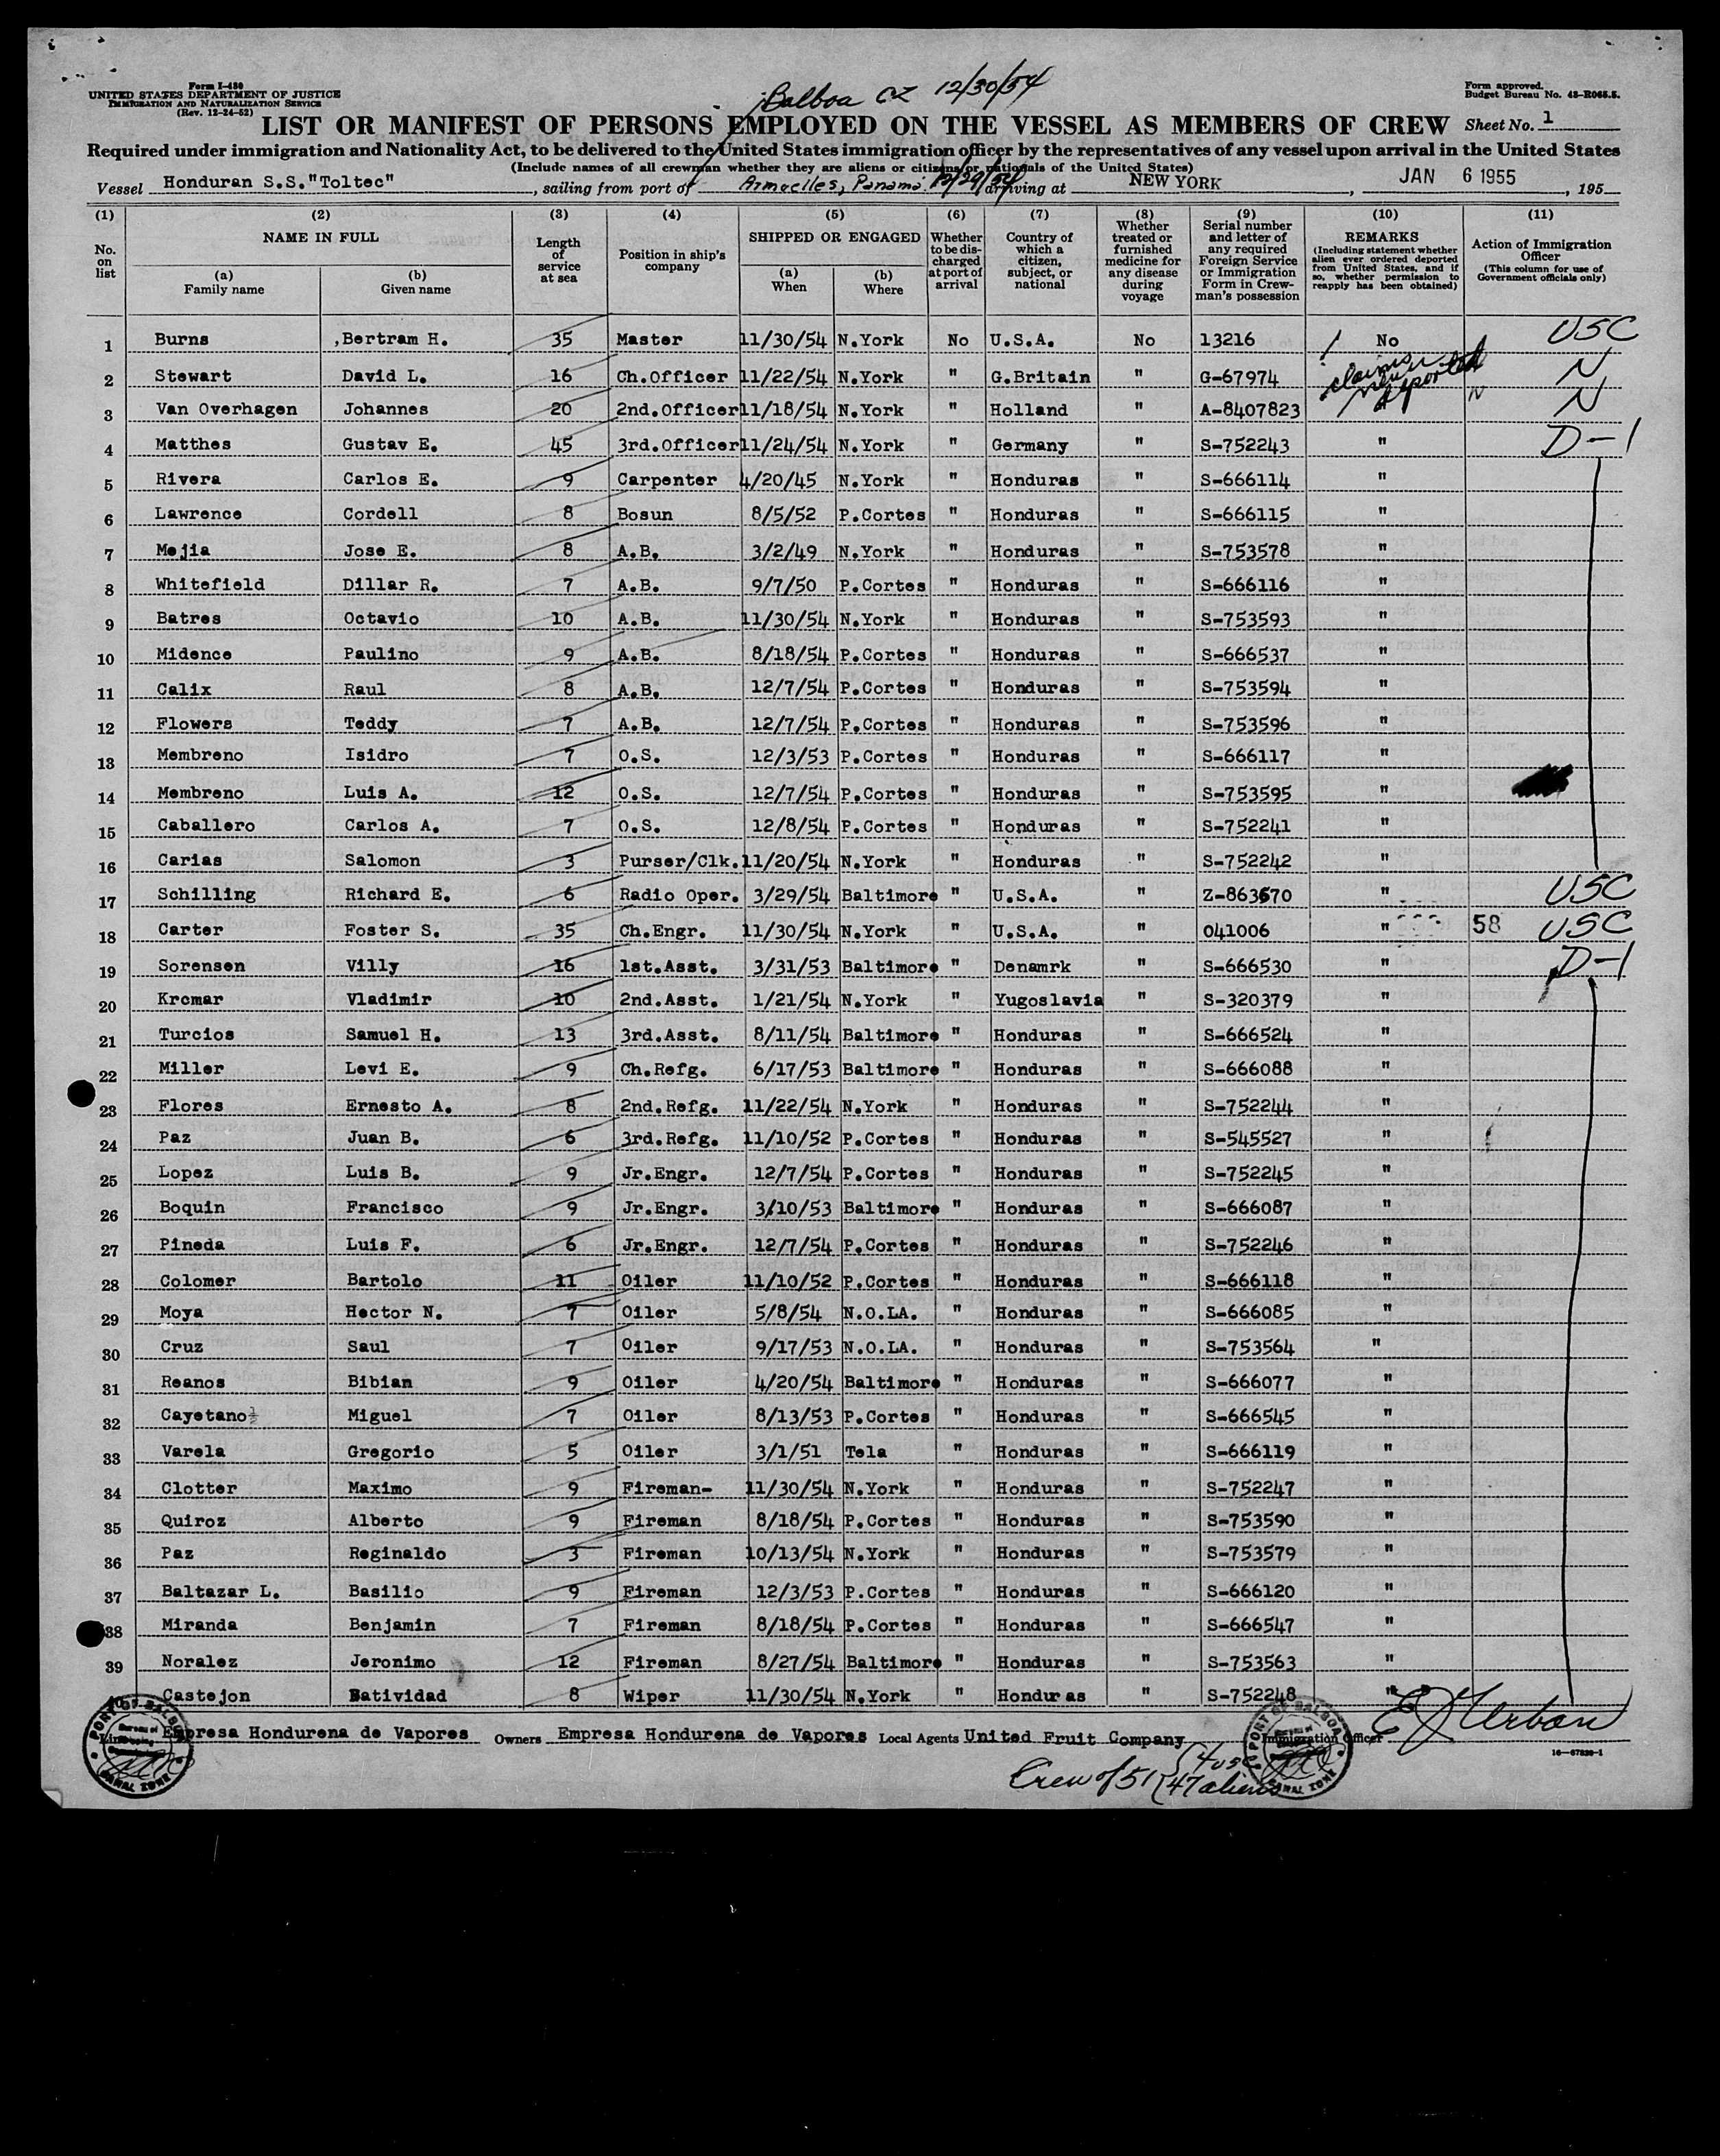 Form I-480
UNITED STATES DEPARTMENT OF JUSTICE
IMMIGRATION AND NATURALIZATION SERVICE
(Rev. 12-24-52)
Balboa CZ 12/30/54
Form approved.
Budget Bureau No. 43-R065.5.
LIST OR MANIFEST OF PERSONS EMPLOYED ON THE VESSEL AS MEMBERS OF CREW Sheet No. 1
Required under immigration and Nationality Act, to be delivered to the United States immigration officer by the representatives of any vessel upon arrival in the United States
(Include names of all crewman whether they are aliens or citizens or nationals of the United States)
Vessel Honduran S.S."Toltec", sailing from port of Armuelles, Panama. 12/29/54 arriving at NEW YORK, JAN 6 1955, 195
(1) (2) (3) (4) (5) (6) (7) (8) (9) (10) (11)
No. on list NAME IN FULL (a) Family name (b) Given name Length of service at sea Position in ship's company SHIPPED OR ENGAGED (a) When (b) Where Whether to be discharged at port of arrival Country of which a citizen, subject, or national Whether treated or furnished medicine for any disease during voyage Serial number and letter of any required Foreign Service or Immigration Form in Crewman's possession REMARKS (Including statement whether alien ever ordered deported from United States, and if so, whether permission to reapply has been obtained) Action of Immigration Officer (This column for use of Government officials only)
1 Burns ,Bertram H. 35 Master 11/30/54 N.York No U.S.A. No 13216 No USC
2 Stewart David L. 16 Ch.Officer 11/22/54 N.York " G.Britain " G-67974 claims never deported N
3 Van Overhagen Johannes 20 2nd.Officer 11/18/54 N.York " Holland " A-8407823 N N
4 Matthes Gustav E. 45 3rd.Officer 11/24/54 N.York " Germany " S-752243 " D-1
5 Rivera Carlos E. 9 Carpenter 4/20/45 N.York " Honduras " S-666114 "
6 Lawrence Cordell 8 Bosun 8/5/52 P.Cortes " Honduras " S-666115 "
7 Mejia Jose E. 8 A.B. 3/2/49 N.York " Honduras " S-753578 "
8 Whitefield Dillar R. 7 A.B. 9/7/50 P.Cortes " Honduras " S-666116 "
9 Batres Octavio 10 A.B. 11/30/54 N.York " Honduras " S-753593 "
10 Midence Paulino 9 A.B. 8/18/54 P.Cortes " Honduras " S-666537 "
11 Calix Raul 8 A.B. 12/7/54 P.Cortes " Honduras " S-753594 "
12 Flowers Teddy 7 A.B. 12/7/54 P.Cortes " Honduras " S-753596 "
13 Membreno Isidro 7 O.S. 12/3/53 P.Cortes " Honduras " S-666117 "
14 Membreno Luis A. 12 O.S. 12/7/54 P.Cortes " Honduras " S-753595 "
15 Caballero Carlos A. 7 O.S. 12/8/54 P.Cortes " Honduras " S-752241 "
16 Carias Salomon 3 Purser/Clk. 11/20/54 N.York " Honduras " S-752242 "
17 Schilling Richard E. 6 Radio Oper. 3/29/54 Baltimore " U.S.A. " Z-863670 " USC
18 Carter Foster S. 35 Ch.Engr. 11/30/54 N.York " U.S.A. " 041006 " 58 USC
19 Sorensen Villy 16 1st.Asst. 3/31/53 Baltimore " Denamrk " S-666530 " D-1
20 Krcmar Vladimir 10 2nd.Asst. 1/21/54 N.York " Yugoslavia " S-320379 "
21 Turcios Samuel H. 13 3rd.Asst. 8/11/54 Baltimore " Honduras " S-666524 "
22 Miller Levi E. 9 Ch.Refg. 6/17/53 Baltimore " Honduras " S-666088 "
23 Flores Ernesto A. 8 2nd.Refg. 11/22/54 N.York " Honduras " S-752244 "
24 Paz Juan B. 6 3rd.Refg. 11/10/52 P.Cortes " Honduras " S-545527 "
25 Lopez Luis B. 9 Jr.Engr. 12/7/54 P.Cortes " Honduras " S-752245 "
26 Boquin Francisco 9 Jr.Engr. 3/10/53 Baltimore " Honduras " S-666087 "
27 Pineda Luis F. 6 Jr.Engr. 12/7/54 P.Cortes " Honduras " S-752246 "
28 Colomer Bartolo 11 Oiler 11/10/52 P.Cortes " Honduras " S-666118 "
29 Moya Hector N. 7 Oiler 5/8/54 N.O.LA. " Honduras " S-666085 "
30 Cruz Saul 7 Oiler 9/17/53 N.O.LA. " Honduras " S-753564 "
31 Reanos Bibian 9 Oiler 4/20/54 Baltimore " Honduras " S-666077 "
32 Cayetano½ Miguel 7 Oiler 8/13/53 P.Cortes " Honduras " S-666545 "
33 Varela Gregorio 5 Oiler 3/1/51 Tela " Honduras " S-666119 "
34 Clotter Maximo 9 Fireman- 11/30/54 N.York " Honduras " S-752247 "
35 Quiroz Alberto 9 Fireman 8/18/54 P.Cortes " Honduras " S-753590 "
36 Paz Reginaldo 3 Fireman 10/13/54 N.York " Honduras " S-753579 "
37 Baltazar L. Basilio 9 Fireman 12/3/53 P.Cortes " Honduras " S-666120 "
38 Miranda Benjamin 7 Fireman 8/18/54 P.Cortes " Honduras " S-666547 "
39 Noralez Jeronimo 12 Fireman 8/27/54 Baltimore " Honduras " S-753563 "
40 Castejon Natividad 8 Wiper 11/30/54 N.York " Honduras " S-752248 "
Line Empresa Hondurena de Vapores Owners Empresa Hondurena de Vapores Local Agents United Fruit Company Immigration Officer E J Urban
16-67839-1
PORT OF BALBOA CANAL ZONE
PORT OF BALBOA CANAL ZONE
Crew of 51 { 4 usc
47 aliens